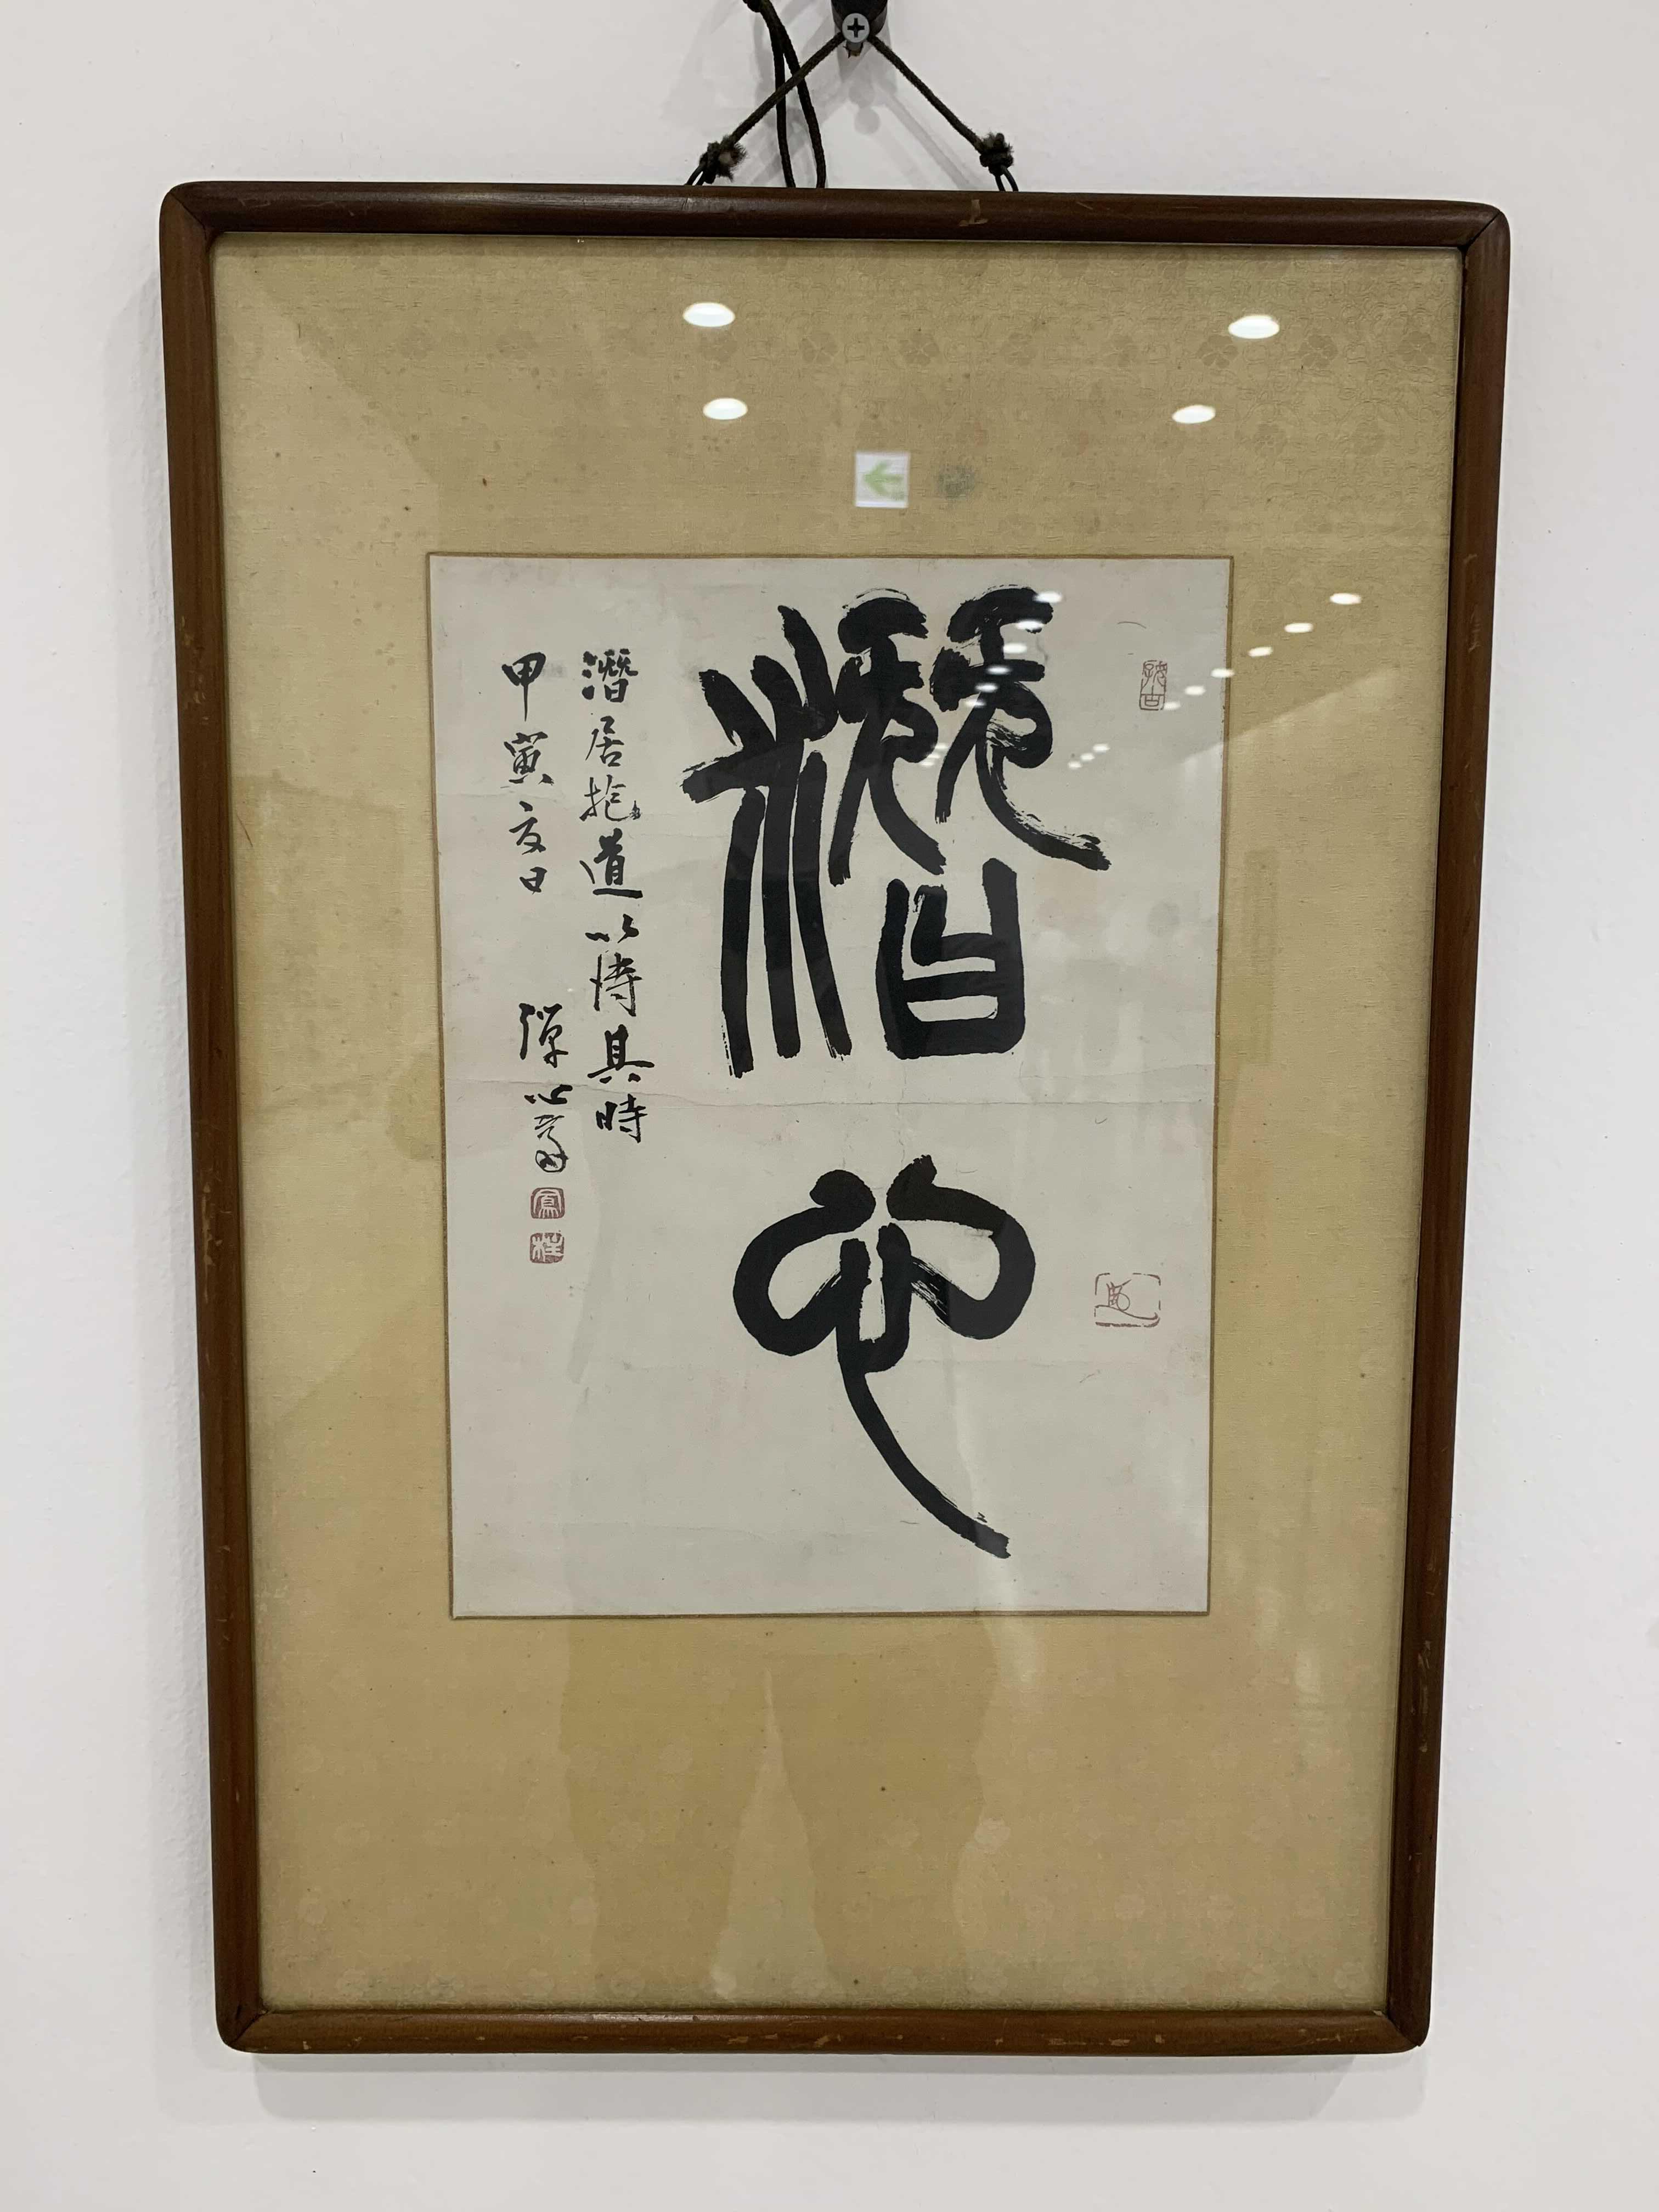 潛心
潛居抱道以待其時
甲寅夏日